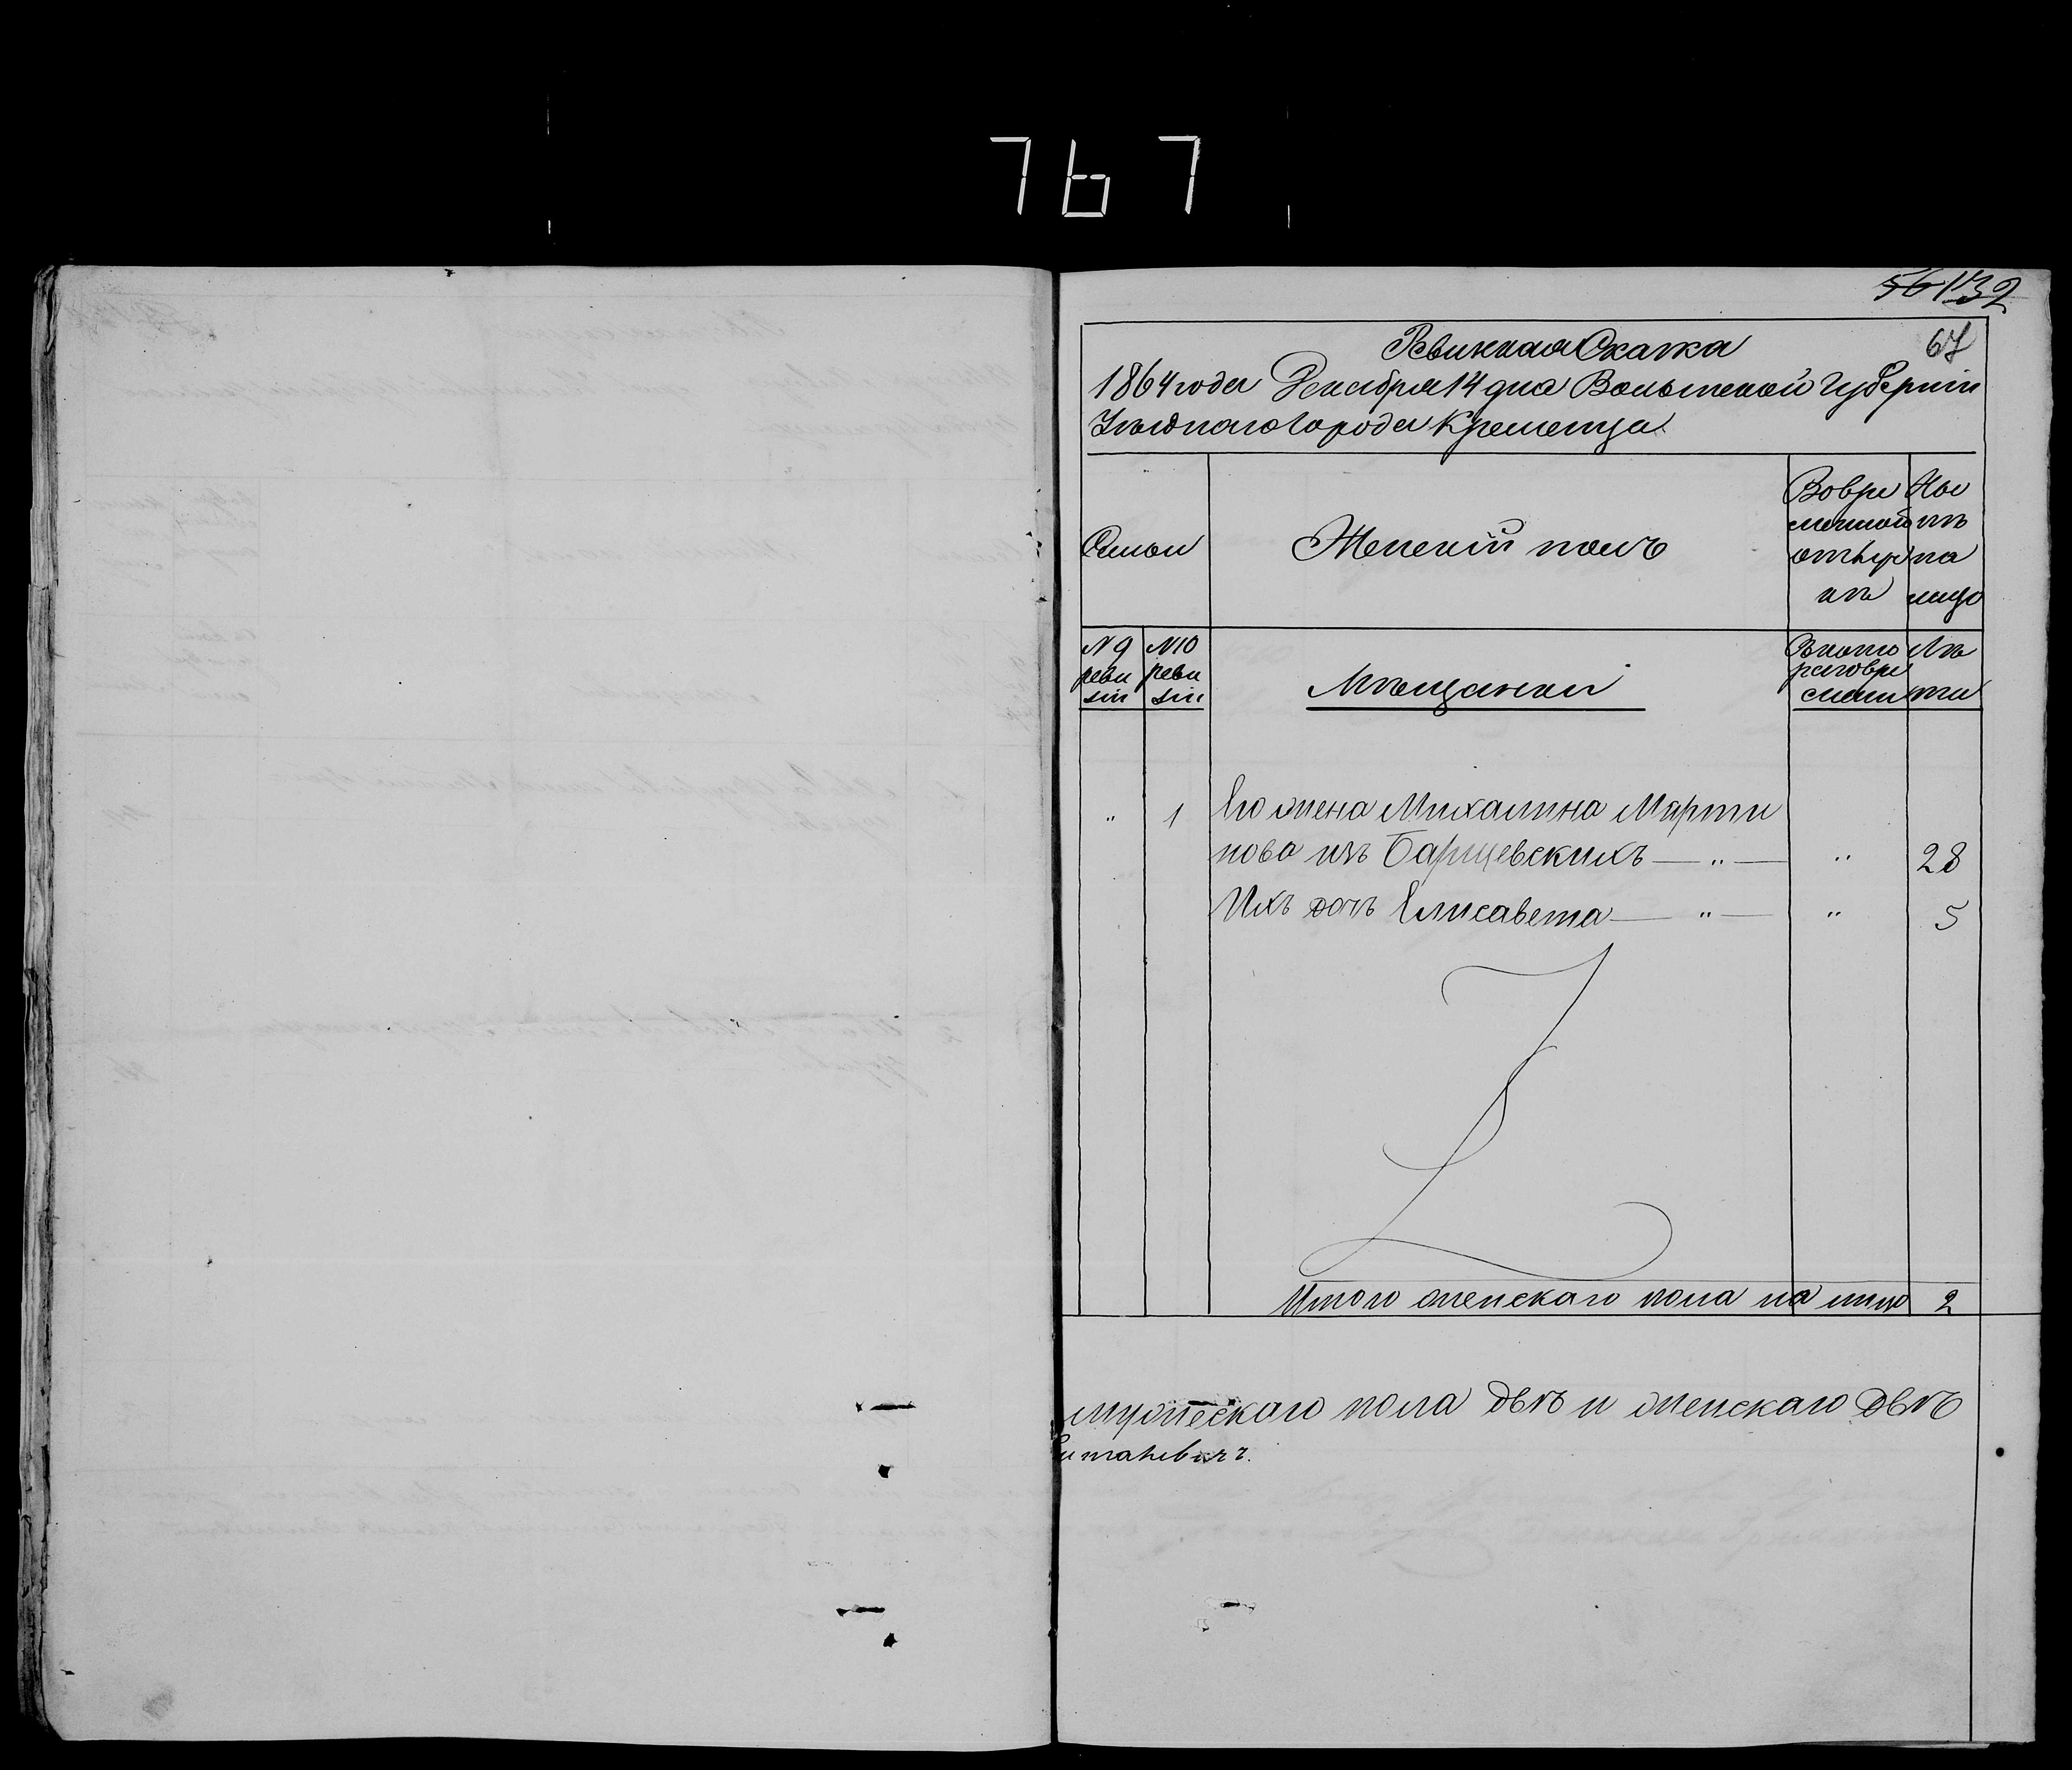 767
56 132
67
Ревизкая Сказка
1864 года Декабря 14 дня Волынской Губерніи
Уѣзднаго города Кременца
Семьи
Женскій полъ
Во вре
менной
отлуч
кѣ
Ны
нѣ
на
лицо
N 9
реви
зіи
N 10
реви
зіи
Мѣщанки
Съ кото
раго вре
мени
Лѣ
та
„ 1 Его жена Михалина Марти
нова изъ Барщевскихъ — „ — „ 28
Ихъ дочь Елисавета — „ — „ 5
Итого женскаго пола на лицо 2
мужескаго пола двѣ и женскаго двѣ